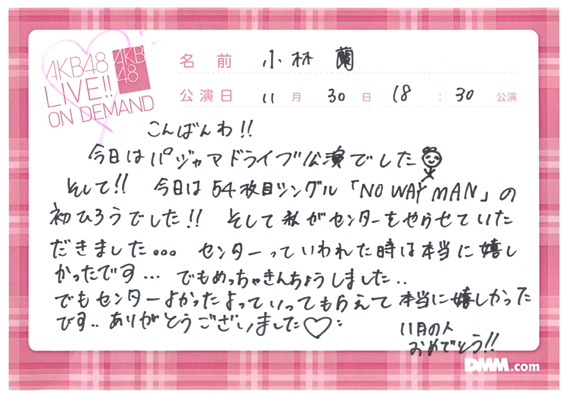 AKB48
LIVE!!
ON DEMAND
AKB
48
名前 小林 蘭
公演日 11月 30日 18:30 公演
こんばんわ!!
今日はパジャマドライブ公演でした
そして!! 今日は54枚目シングル「NO WAY MAN」の
初ひろうでした!! そして私がセンターをやらせていた
だきました... センターっていわれた時は本当に嬉し
かったです... でもめっちゃきんちょうしました..
でもセンターよかったよっていってもらえて本当に嬉しかった
です.. ありがとうございました♡
11月の人
おめでとう!!
DMM.com